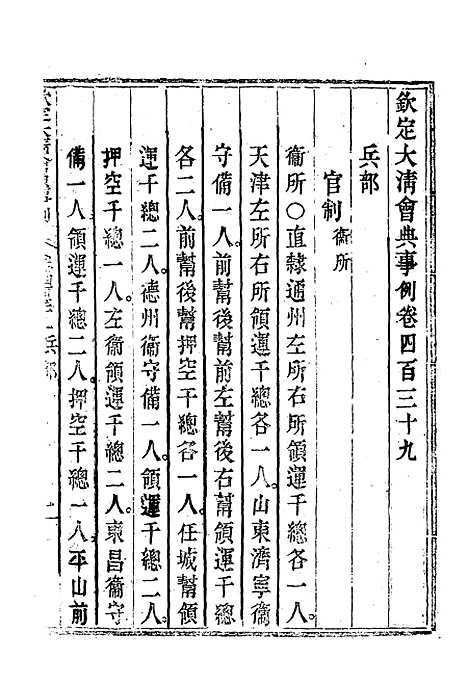 欽定大清會典事例卷四百三十九
兵部
官制 衞所
衞所○直隸通州左所右所領運千總各一人。
天津左所右所領運千總各一人。山東濟寧衞
守備一人。前幫後幫前左幫後右幫領運千總
各二人。前幫後幫押空千總各一人。任城幫領
運千總二人。德州衞守備一人。領運千總二人。
押空千總一人。左衞領運千總二人。東昌衞守
備一人。領運千總二人。押空千總一人。平山前
欽定大清會典事例 兵部